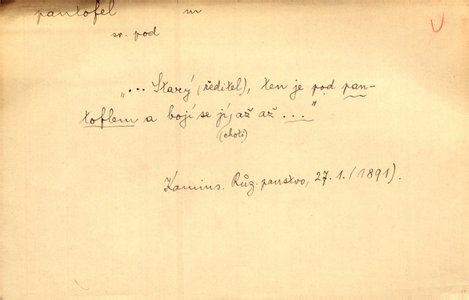 pantofel m
sv. pod
"... Starý (ředitel), ten je pod pan-
toflem a bojí se jí, až až ..."
(choti)
Kamins. Růž. panstvo, 27. 1. (1891).